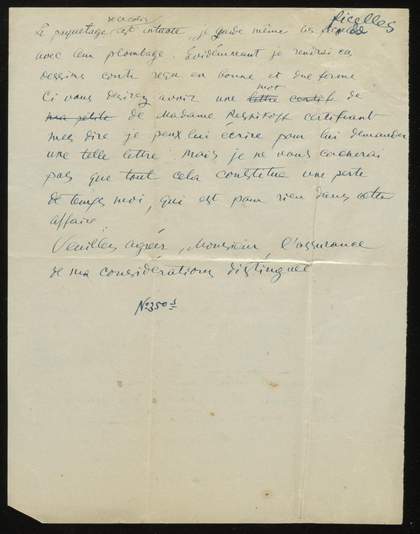 ficelles
Le paquetage est intacte, je garde même les
avec leur plombage. Evidemment je rendrai ces
dessins contre reçu en bonne et due forme
Ci vous desirez avoir une lettre mot de
de Madame certifiant
mes dire je peux lui ecrire pour lui demander
une telle lettre. Mais je ne vous cacherai
pas que tout cela constitue une perte
de temps moi, qui est pour rien dans cette
affaire.
Veuillez agréer, Monsieur, l'assurance
de ma consideration distinguée